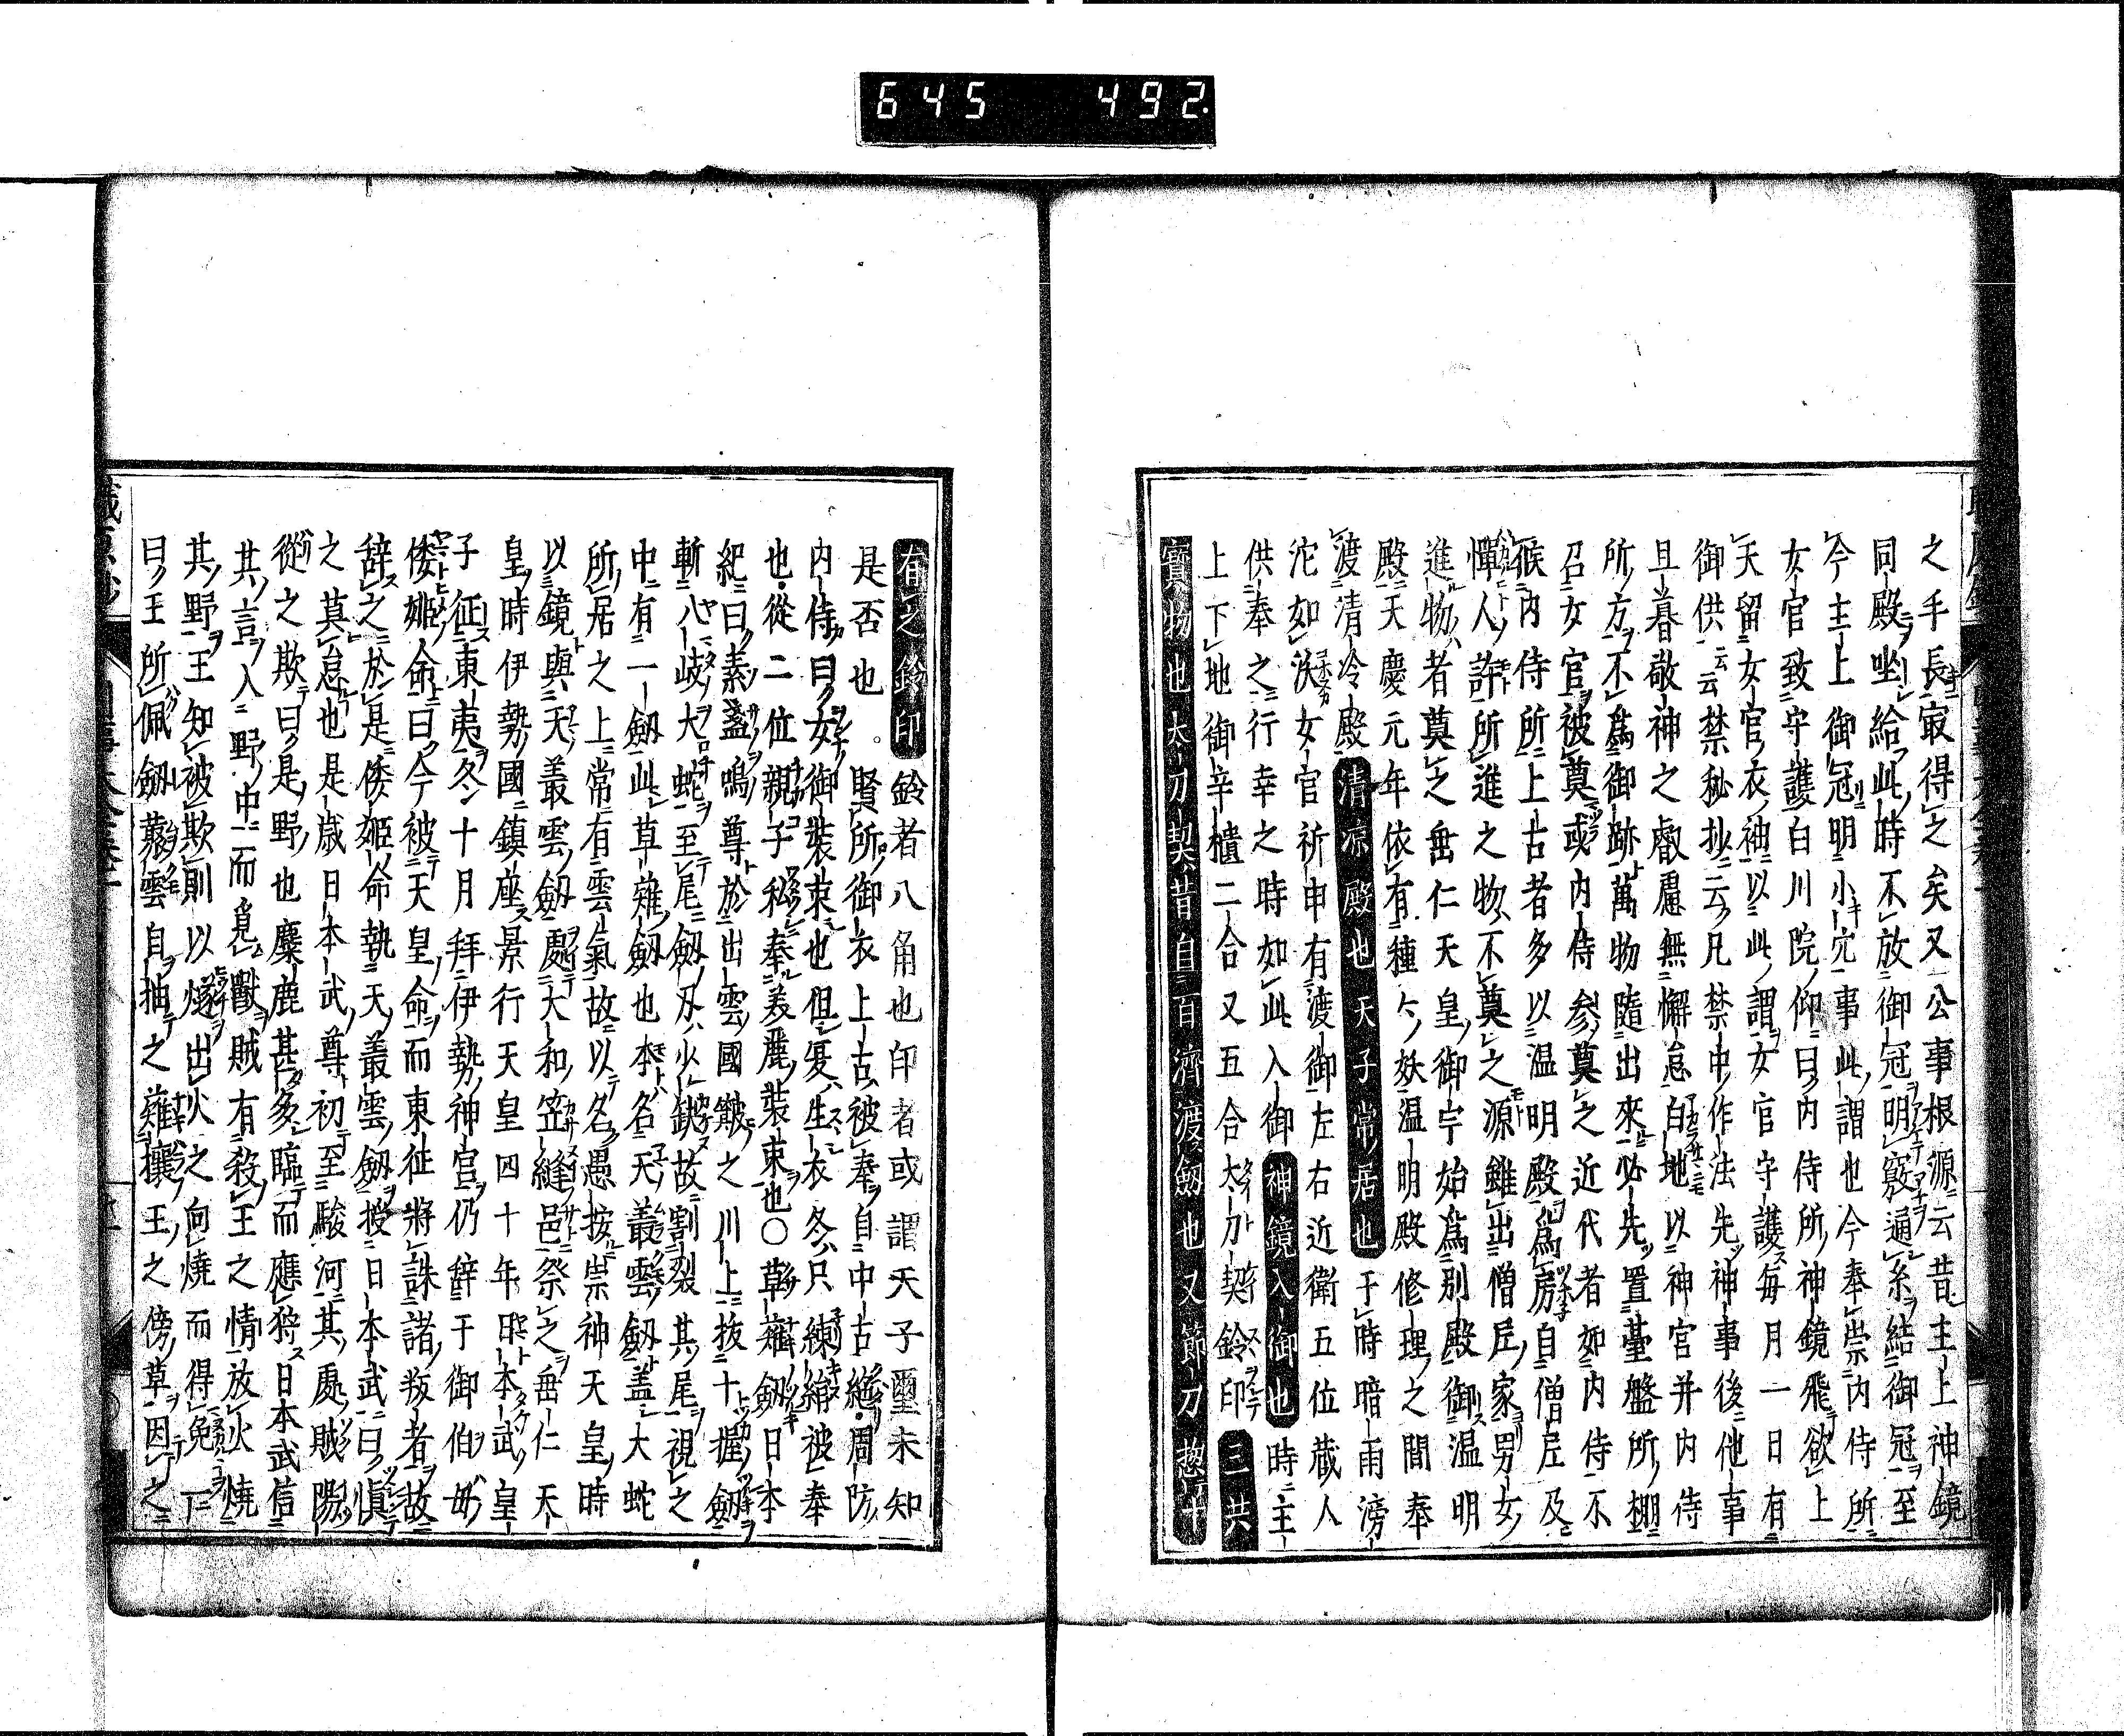 645 492.
之手長㝡得之矣又公事根源云昔主上神鏡
同殿坐給此時不放御冠明竅通糸結御冠至
今主上御冠明小穴事此謂也今奉崇内侍所
女官致守護白川院仰曰内侍所神鏡飛欲上
天留女官衣袖以此謂女官守護毎月一日有
御供云云禁秘抄云凡禁中作法先神事後他事
旦暮敬神之叡慮無懈怠白地以神官并内侍
所方不爲御跡萬物隨出來必先置臺盤所棚
召女官被奠或内侍参奠之近代者如内侍不
候内侍所上古者多以温明殿爲房自僧尼及
憚人許所進之物不奠之源雖出僧尼家男女
進物者奠之垂仁天皇御宇始爲別殿御温明
殿天慶元年依有種々妖温明殿修理之間奉
渡清冷殿清凉殿也天子常居也于時暗雨滂
沱如沃女官祈申有渡御左右近衛五位蔵人
供奉之行幸之時如此入御神鏡入御也時主
上下地御辛櫃二合又五合大刀契鈴印三共
寳物也大刀契昔自百濟渡劔也又節刀惣十
有之鈴印鈴者八角也印者或謂天子璽未知
是否也。賢所御衣上古被奉自中古絶周防
内侍曰女御裝束也但夏生衣冬只練絹被奉
也從二位親子私奉美麗裝束也〇草薙劔日本
紀曰素盞嗚尊於出雲國簸之川上抜十握劔
斬八岐大蛇至尾劔刃少缺故割裂其尾視之
中有一劔此草薙劔也本名天叢雲劔盖大蛇
所居之上常有雲氣故以名愚按崇神天皇時
以鏡與天叢雲劔處大和笠縫邑祭之垂仁天
皇時伊勢國鎮座景行天皇四十年日本武皇
子征東夷冬十月拜伊勢神宮仍辭于御伯母
倭姫命曰今被天皇命而東征將誅諸叛者故
辞之於是倭姫命執天叢雲劔授日本武曰愼
之莫怠也是歳日本武尊初至駿河其處賊陽
從之欺曰是野也麋鹿甚多臨而應狩日本武信
其言入野中而覓獸賊有殺王之情放火燒
其野王知被欺則以燧出火之向燒而得免一
曰王所佩劔叢雲自抽之薙攘王之傍草因之